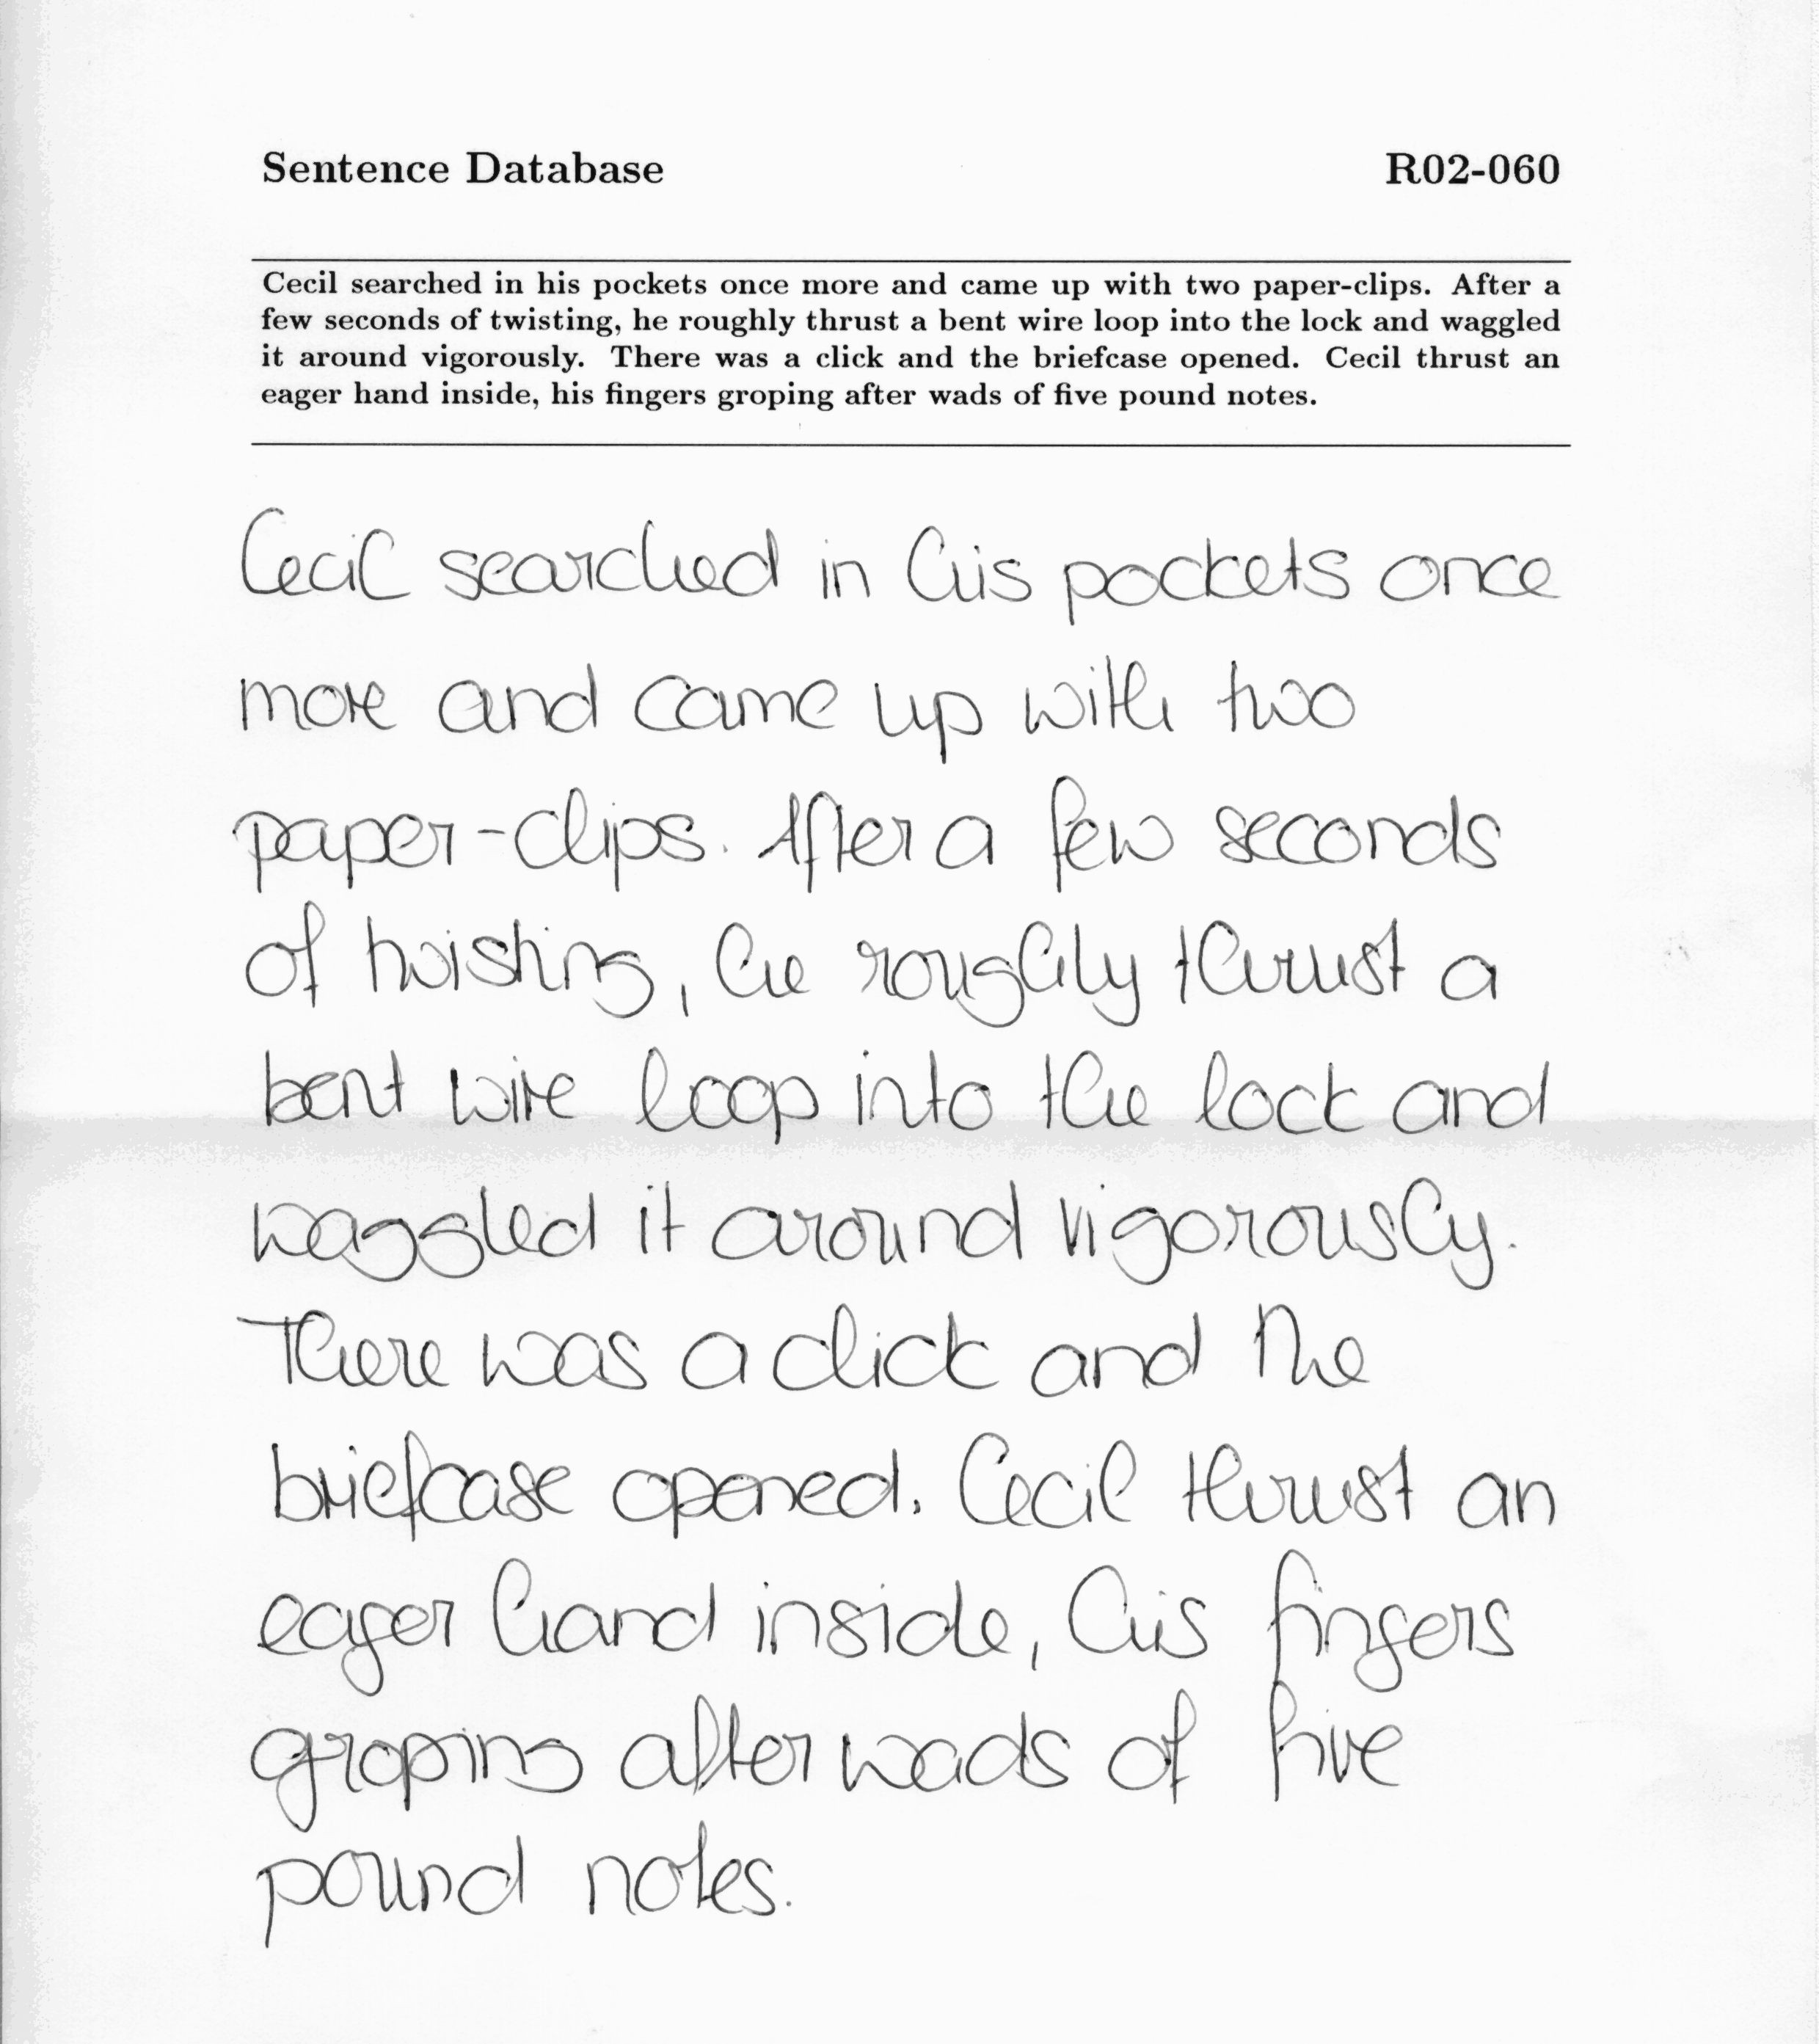 Sentence Database R02-060
Cecil searched in his pockets once more and came up with two paper-clips. After a
few seconds of twisting, he roughly thrust a bent wire loop into the lock and waggled
it around vigorously. There was a click and the briefcase opened. Cecil thrust an
eager hand inside, his fingers groping after wads of five pound notes.
Cecil searched in his pockets once
more and came up with two
paper-clips. After a few seconds
of twisting, he roughly thrust a
bent wire loop into the lock and
waggled it around vigorously.
There was a click and the
briefcase opened. Cecil thrust an
eager hand inside, his fingers
groping after wads of five
pound notes.